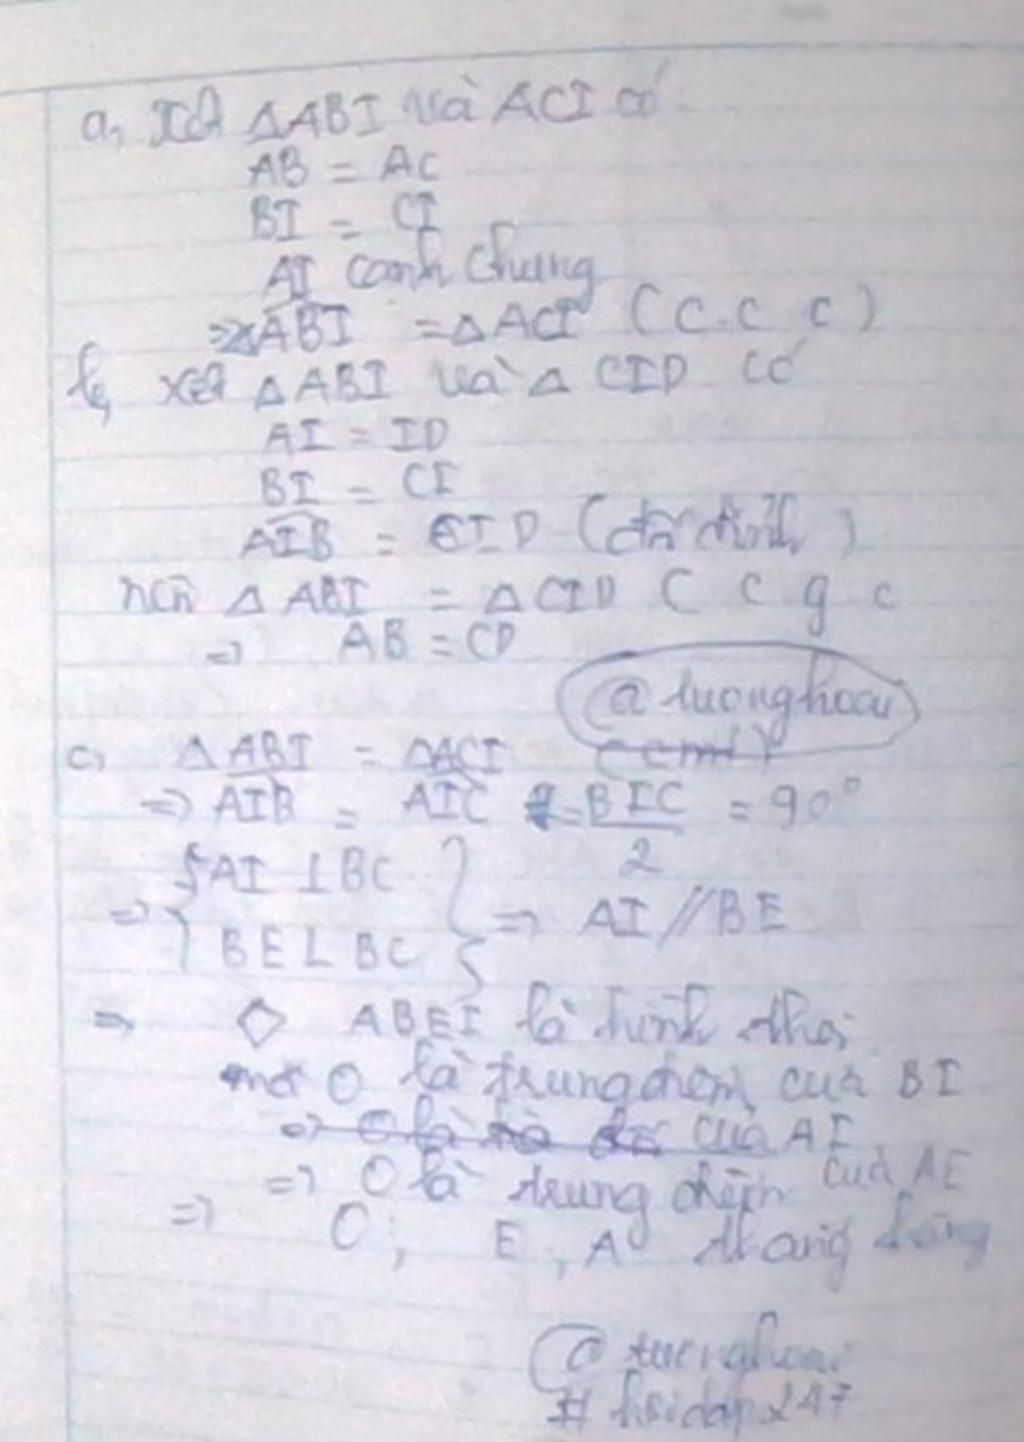 a, Xét ΔABI và ACI có:
AB = AC
BI = CI
AI cạnh chung
=> ABI = ΔACI (c.c c)
b, xét ΔABI và Δ CID có
AI = ID
BI = CI
AIB = CID (đối đỉnh)
nên Δ ABI = ΔCID ( c g c
=> AB = CD
@tuonghoai
c, ΔABI = ΔACI
=> AIB = AIC = BIC/2 = 90°
=> { AI ⊥ BC
BE ⊥ BC } => AI // BE
=> ◇ ABEI là hình thoi
mà O là trung điểm của BI
=> O là của AE
=> O là trung điểm của AE
=> O; E, A thẳng hàng
@tuonghoai
# hoidap247